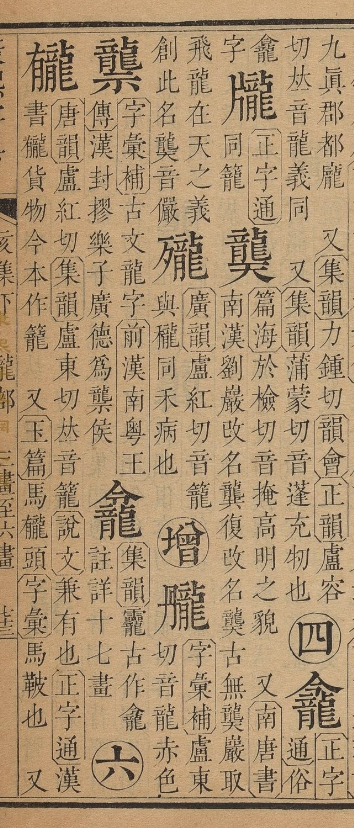 九眞郡都龐　又集韻力鍾切韻會正韻盧容
切𠀤音龍義同　又集韻蒲蒙切音蓬充牣也
四
龕
正字
通俗
龕
字
正字通
同籠
龑
篇海於檢切音掩高明之貌　又南唐書
南漢劉巖改名龔復改名龑古無龑巖取
飛龍在天之義
創此名龑音儼
廣韻盧紅切音籠
與櫳同禾病也
增
字彙補盧東
切音龍赤色
龒
字彙補古文龍字前漢南粵王
傳漢封摎樂子廣德爲龒侯
集韻靇古作龕
註詳十七畫
六
龓
唐韻盧紅切集韻盧東切𠀤音籠說文兼有也正字通漢
書龓貨物今本作籠　又玉篇馬龓頭字彙馬鞁也　又
亥集下　龍部　三畫至六畫　廿三